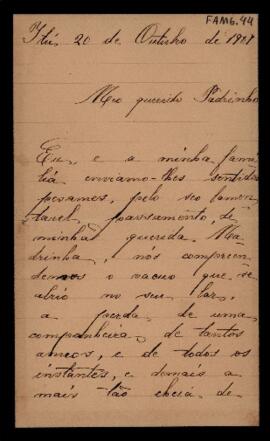 FAM6.44
Itú, 20 de Outubro de
Meo querido Padrinho
Eu, e a minha fami
lia enviamo-lhes sentidos
pesamos, pelo seo lamen
tavel passamento, de
minha querida Ma
drinha, nos compreen
demos o vacuo que se
abrio no seu lar,
a perda de uma
companheira, de tantos
annos, e de todos os
instantes, e demais a
mais tão cheia de